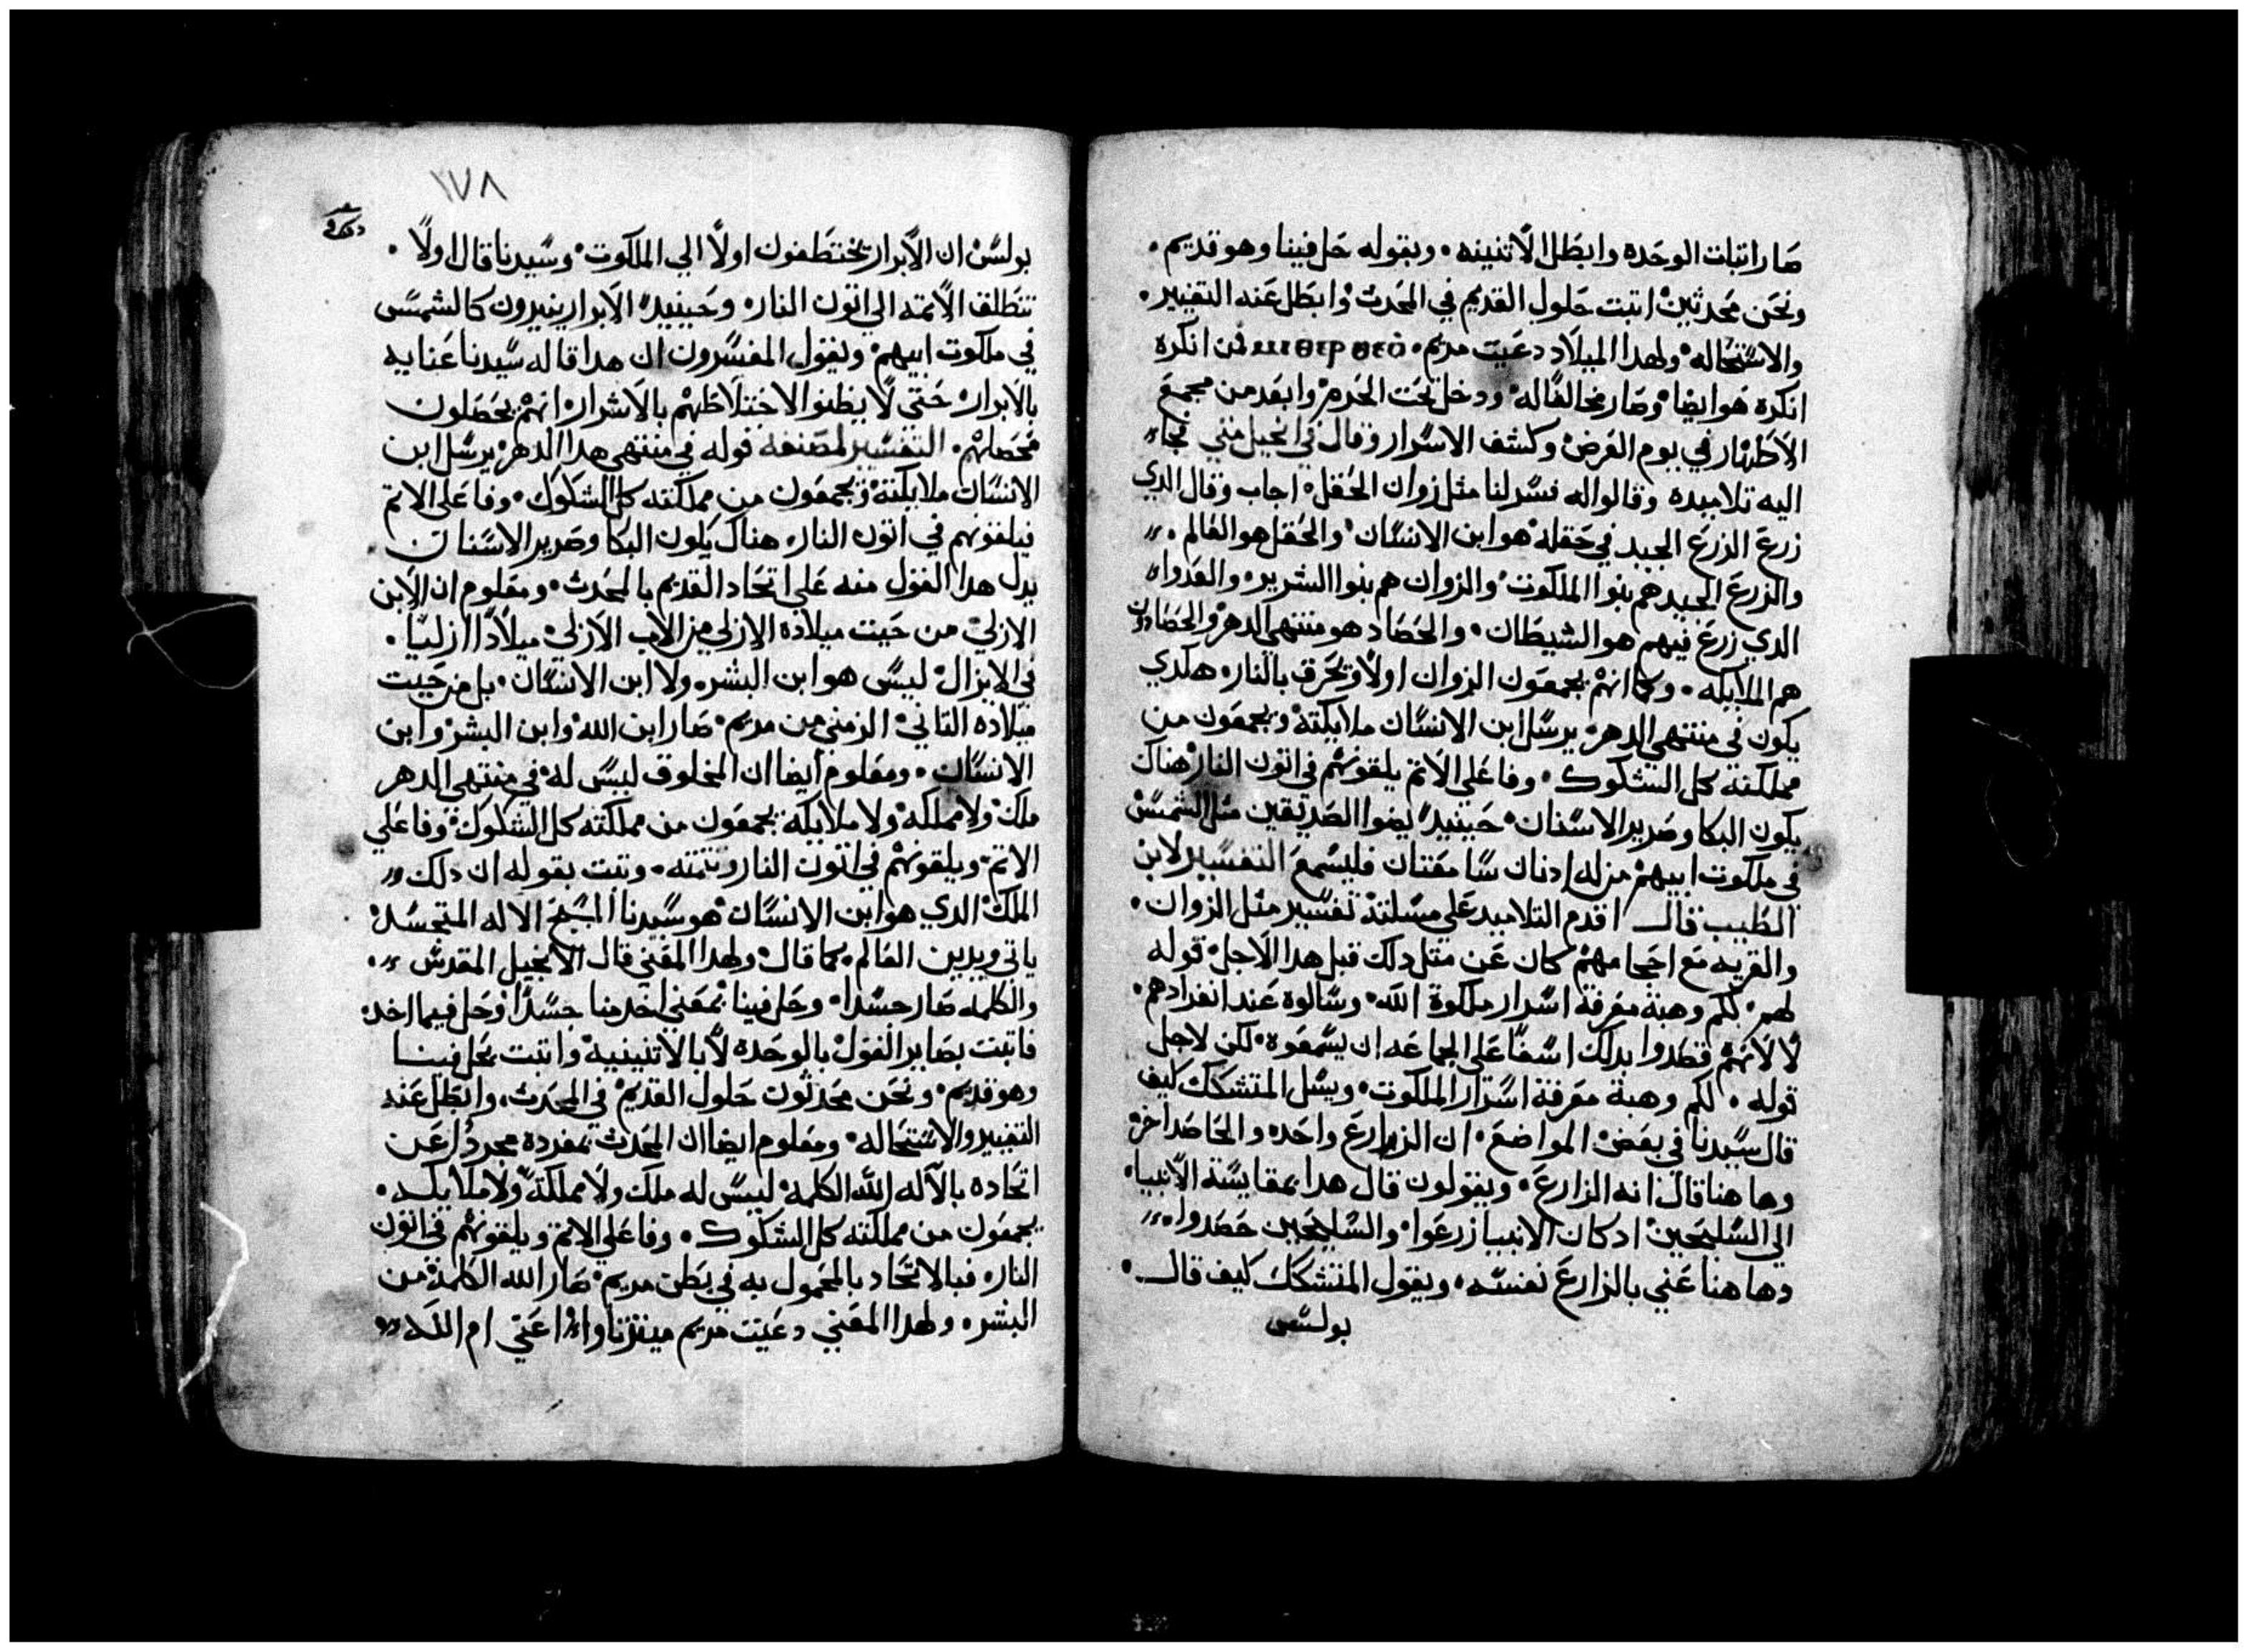 صار اتبات الوحده وابطل الاتنينه • وبقوله حل فينا وهو قديم •
ونحن محدثين اتبت حلول القديم في المحدث وابطل عنه التغيير •
والاستحاله ولهدا الميلاد دعيت مريم • فمن انكره
انكره هو ايضا وصار مخالفا له ودخل تحت الحرم وابعد من مجمع
الاطهار في يوم العرض وكشف الاسرار وقال في انجيل متي فجاء
اليه تلاميده وقالوا له فسر لنا مثل زوان الحقل • اجاب وقال الدي
زرع الزرع الجيد في حقله هو ابن الانسان والحقل هو العالم •
والزرع الجيد هم بنوا الملكوت والزوان هم بنوا الشرير • والعدوا
الدي زرع فيهم هو الشيطان • والحصاد هو منتهي الدهر والحصادون
هم الملايكه • وكما انهم يجمعون الزوان اولا وتحرق بالنار • هكدي
يكون في منتهي الدهر • يرسل ابن الانسان ملايكته ويجمعون من
مملكته كل الشكوك • وفاعلي الاتم يلقونهم في اتون النار هناك
يكون البكا وصرير الاسنان • حينيد يضوا الصديقين مثل الشمس
في ملكوت ابيهم من له ادنان سامعتان فليسمع التفسير لابن
الطيب قال اقدم التلاميد علي مسلتة تفسير مثل الزوان •
والقريه مع احجامهم كان عن مثل دلك قبل هدا لاجل قوله
لهم • لكم وهبة معرفة اسرار ملكوة الله • وسالوه عند انفرادهم •
لا لانهم قصدوا بدلك اسفا علي الجماعه ان يسمعوه • لكن لاجل
قوله • لكم وهبة معرفة اسرار الملكوت • ويسل المتشكك كيف
قال سيدنا في بعض المواضع • ان الزارع واحد والحاصد اخر
وهاهنا قال انه الزارع • ويقولون قال هدا بمقايسة الانبيا •
الي السليحين اد كان الانبيا زرعوا والسليحين حصدوا •
وهاهنا عني بالزارع نفسه • ويقول المتشكك كيف قال •
بولس
١٧٨
بولس ان الابرار يختطفون اولا الي الملكوت • وسيدنا قال اولا •
تنطلق الاتمه الي اتون النار • وحينيد الابرار ينيرون كالشمس
في ملكوت ابيهم • ويقول المفسرون ان هدا قاله سيدنا عنايه
بالابرار حتي لا يظنوا لاختلاطهم بالاشرار انهم يحصلون
محصلهم • التفسير لمصنفه قوله في منتهي هدا الدهر يرسل ابن
الانسان ملايكته ويجمعون من مملكته كل الشكوك • وفاعلي الاتم
فيلقونهم في اتون النار • هناك يكون البكا وصرير الاسنان •
يدل هدا القول منه علي اتحاد القديم بالمحدث • ومعلوم ان الابن
الازلي من حيت ميلاده الازلي من الاب الازلي ميلادا ازليا •
في الايزال ليس هو ابن البشر • ولا ابن الانسان • بل من حيت
ميلاده التاني الزمني من مريم • صار ابن الله وابن البشر وابن
الانسان • ومعلوم أيضا ان المخلوق ليس له في منتهي الدهر
ملك ولا مملكه ولا ملايكه يجمعون من مملكته كل الشكوك وفاعلي
الاتم • ويلقونهم في اتون النار وتتمته • وتبت بقوله ان دلك
الملك الدي هو ابن الانسان هو سيدنا المسيح الاله المتجسد
ياتي ويدين العالم • كما قال ولهدا المعني قال الانجيل المقدس •
والكلمه صار جسدا • وحل فينا بمعني اخد منا جسدا وحل فيما اخد •
فاتبت بصاير القول بالوحده لا بالاتنينية واتبت بحل فينا
وهو قديم • ونحن محدثون حلول القديم في المحدث • وابطل عنه
التغيير والاستحاله • ومعلوم ايضا ان المحدث بمفرده مجردا عن
اتحاده بالاله الله الكلمه ليس له ملك ولا مملكة ولا ملايكه •
يجمعون من مملكته كل الشكوك • وفاعلي الاتم ويلقونهم في اتون
النار • فبالاتحاد بالمحمول به في بطن مريم • صار الله الكلمة من
البشر • ولهدا المعني دعيت مريم اعني ام الله